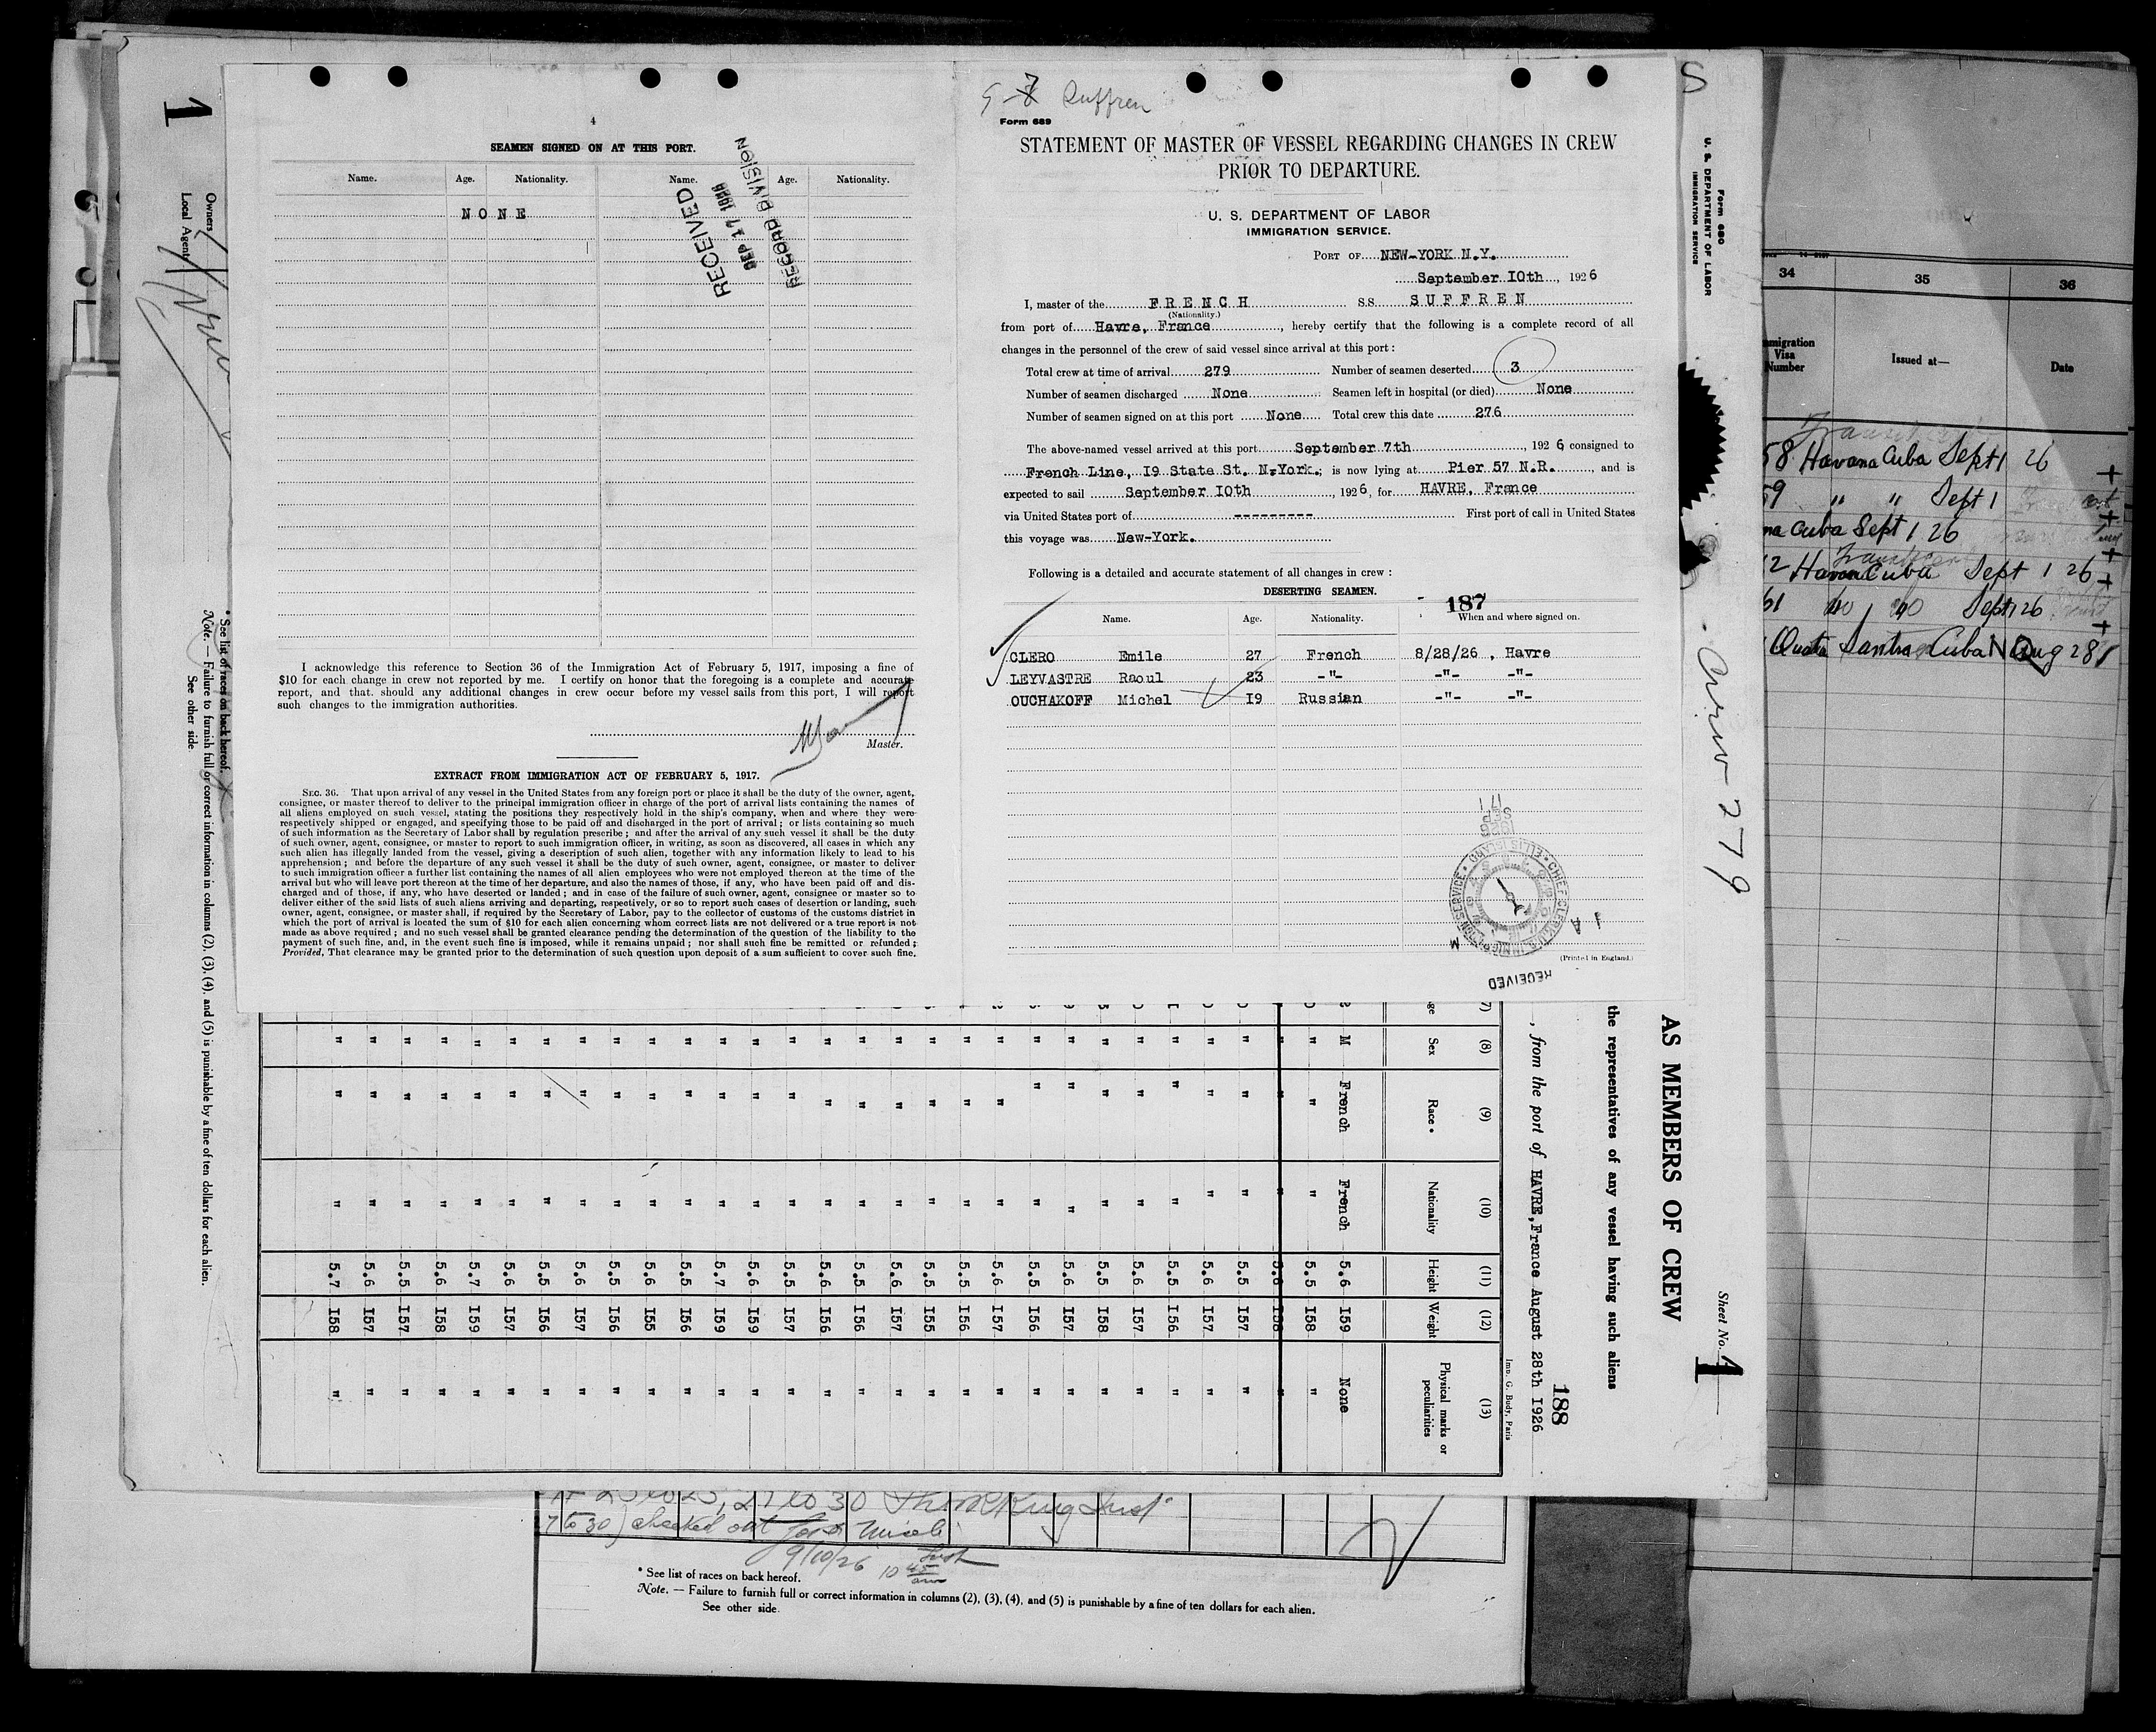 4
SEAMEN SIGNED ON AT THIS PORT.
Name. Age. Nationality. Name. Age. Nationality.
NONE
RECEIVED
SEP 17 1926
RECORD DIVISION
I acknowledge this reference to Section 36 of the Immigration Act of February 5, 1917, imposing a fine of
$10 for each change in crew not reported by me. I certify on honor that the foregoing is a complete and accurate
report, and that. should any additional changes in crew occur before my vessel sails from this port, I will report
such changes to the immigration authorities.
Master.
EXTRACT FROM IMMIGRATION ACT OF FEBRUARY 5, 1917.
SEC. 36. That upon arrival of any vessel in the United States from any foreign port or place it shall be the duty of the owner, agent,
consignee, or master thereof to deliver to the principal immigration officer in charge of the port of arrival lists containing the names of
all aliens employed on such vessel, stating the positions they respectively hold in the ship's company, when and where they were
respectively shipped or engaged, and specifying those to be paid off and discharged in the port of arrival; or lists containing so much
of such information as the Secretary of Labor shall by regulation prescribe; and after the arrival of any such vessel it shall be the duty
of such owner, agent, consignee, or master to report to such immigration officer, in writing, as soon as discovered, all cases in which any
such alien has illegally landed from the vessel, giving a description of such alien, together with any information likely to lead to his
apprehension; and before the departure of any such vessel it shall be the duty of such owner, agent, consignee, or master to deliver
to such immigration officer a further list containing the names of all alien employees who were not employed thereon at the time of the
arrival but who will leave port thereon at the time of her departure, and also the names of those, if any, who have been paid off and dis-
charged and of those, if any, who have deserted or landed; and in case of the failure of such owner, agent, consignee or master so to
deliver either of the said lists of such aliens arriving and departing, respectively, or so to report such cases of desertion or landing, such
owner, agent, consignee, or master shall, if required by the Secretary of Labor, pay to the collector of customs of the customs district in
which the port of arrival is located the sum of $10 for each alien concerning whom correct lists are not delivered or a true report is not
made as above required; and no such vessel shall be granted clearance pending the determination of the question of the liability to the
payment of such fine, and, in the event such fine is imposed, while it remains unpaid; nor shall such fine be remitted or refunded:
Provided, That clearance may be granted prior to the determination of such question upon deposit of a sum sufficient to cover such fine.
Suffren
Form 689
STATEMENT OF MASTER OF VESSEL REGARDING CHANGES IN CREW
PRIOR TO DEPARTURE.
U. S. DEPARTMENT OF LABOR
IMMIGRATION SERVICE.
PORT OF NEW-YORK N.Y.
September 10th, 1926
I, master of the FRENCH S.S. SUFFREN
(Nationality.)
from port of Havre, France, hereby certify that the following is a complete record of all
changes in the personnel of the crew of said vessel since arrival at this port:
Total crew at time of arrival 279 Number of seamen deserted 3
Number of seamen discharged None Seamen left in hospital (or died) None
Number of seamen signed on at this port None Total crew this date 276
The above-named vessel arrived at this port September 7th, 1926 consigned to
French Line, I9 State St. N.York.; is now lying at Pier 57 N.R., and is
expected to sail September 10th, 1926, for HAVRE, France
via United States port of --------- First port of call in United States
this voyage was New-York.
Following is a detailed and accurate statement of all changes in crew:
DESERTING SEAMEN.
187
Name. Age. Nationality. When and where signed on.
CLERO Emile 27 French 8/28/26, Havre
LEYVASTRE Raoul 23 -"- -"- -"-
OUCHAKOFF Michel I9 Russian -"- -"-
1926
SEP
17
CHIEF CLERK, U.S. IMMIGRATION SERVICE • ELLIS ISLAND
RECEIVED
(Printed in England.)
1
Owners
Local Agents
* See list of races on back hereof.
Note. — Failure to furnish full or correct information in columns (2), (3), (4), and (5) is punishable by a fine of ten dollars for each alien.
See other side
Form 680
U. S. DEPARTMENT OF LABOR
IMMIGRATION SERVICE
Crew 279
Sheet No. 1
AS MEMBERS OF CREW
the representatives of any vessel having such aliens
188
, from the port of HAVRE, France August 28th I926
Imp. G. Budy, Paris
(7) (8) (9) (10) (11) (12) (13)
Sex Race * Nationality Height Weight Physical marks or peculiarities
M French French 5.6 I59 None
" " " 5.5 I58 "
" " " 5.6 I58 "
" " " 5.5 I57 "
" " " 5.6 I57 "
" " " 5.5 I56 "
" " " 5.6 I57 "
" " " 5.5 I58 "
" " " 5.6 I57 "
" " " 5.5 I56 "
" " " 5.6 I57 "
" " " 5.5 I56 "
" " " 5.5 I55 "
" " " 5.6 I57 "
" " " 5.5 I56 "
" " " 5.6 I56 "
" " " 5.5 I57 "
" " " 5.6 I59 "
" " " 5.7 I59 "
" " " 5.5 I56 "
" " " 5.6 I55 "
" " " 5.5 I56 "
" " " 5.6 I57 "
" " " 5.5 I56 "
" " " 5.6 I57 "
" " " 5.7 I59 "
" " " 5.6 I58 "
" " " 5.5 I57 "
" " " 5.6 I57 "
" " " 5.7 I58 "
34 35 36
Immigration Visa Number Issued at— Date
58 Havana Cuba Sept 1 26
59 " " Sept 1
na Cuba Sept 1 26
2 Havana Cuba Sept 1 26
61 do do Sept 1 26
Cuba Aug 28
7 to 30) checked out
9/10/26 10 45 am
* See list of races on back hereof.
Note. — Failure to furnish full or correct information in columns (2), (3), (4), and (5) is punishable by a fine of ten dollars for each alien.
See other side